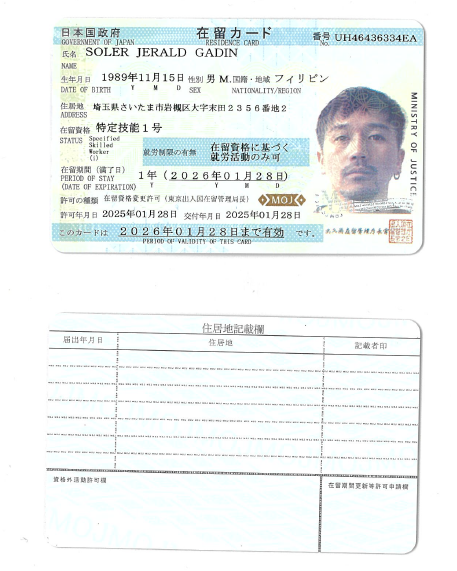 日本国政府 在留カード 番号 UH46436334EA
GOVERNMENT OF JAPAN RESIDENCE CARD No.
氏名 SOLER JERALD GADIN
NAME
生年月日 1989年11月15日 性別 男 M. 国籍・地域 フィリピン
DATE OF BIRTH Y M D SEX NATIONALITY/REGION
住居地 埼玉県さいたま市岩槻区大字末田2356番地2
ADDRESS
在留資格 特定技能1号
STATUS Specified
Skilled
Worker
(i)
就労制限の有無 在留資格に基づく
就労活動のみ可
在留期間(満了日) 1年(2026年01月28日)
PERIOD OF STAY
(DATE OF EXPIRATION) Y M D
許可の種類 在留資格変更許可(東京出入国在留管理局長) MOJ
許可年月日 2025年01月28日 交付年月日 2025年01月28日
このカードは 2026年01月28日まで有効 です。
PERIOD OF VALIDITY OF THIS CARD
MINISTRY OF JUSTICE
住居地記載欄
届出年月日 住居地 記載者印
資格外活動許可欄 在留期間更新等許可申請欄